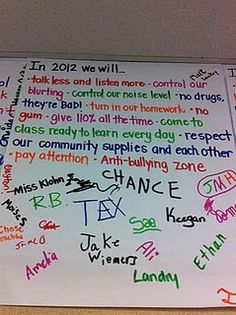 In 2012 we will...
• talk less and listen more • control our
blurting • control our noise level • no drugs,
they're BAD! • turn in our homework • no
gum • give 110% all the time • come to
class ready to learn every day • respect
our community supplies and each other
• pay attention • Anti-bullying zone
Miss Klohn
CHANCE
JMH
R.B.
TAX
Moises
Sae
Keegan
Chase
Jake
Wiemers
Ali
Ethan
Amelia
Landry